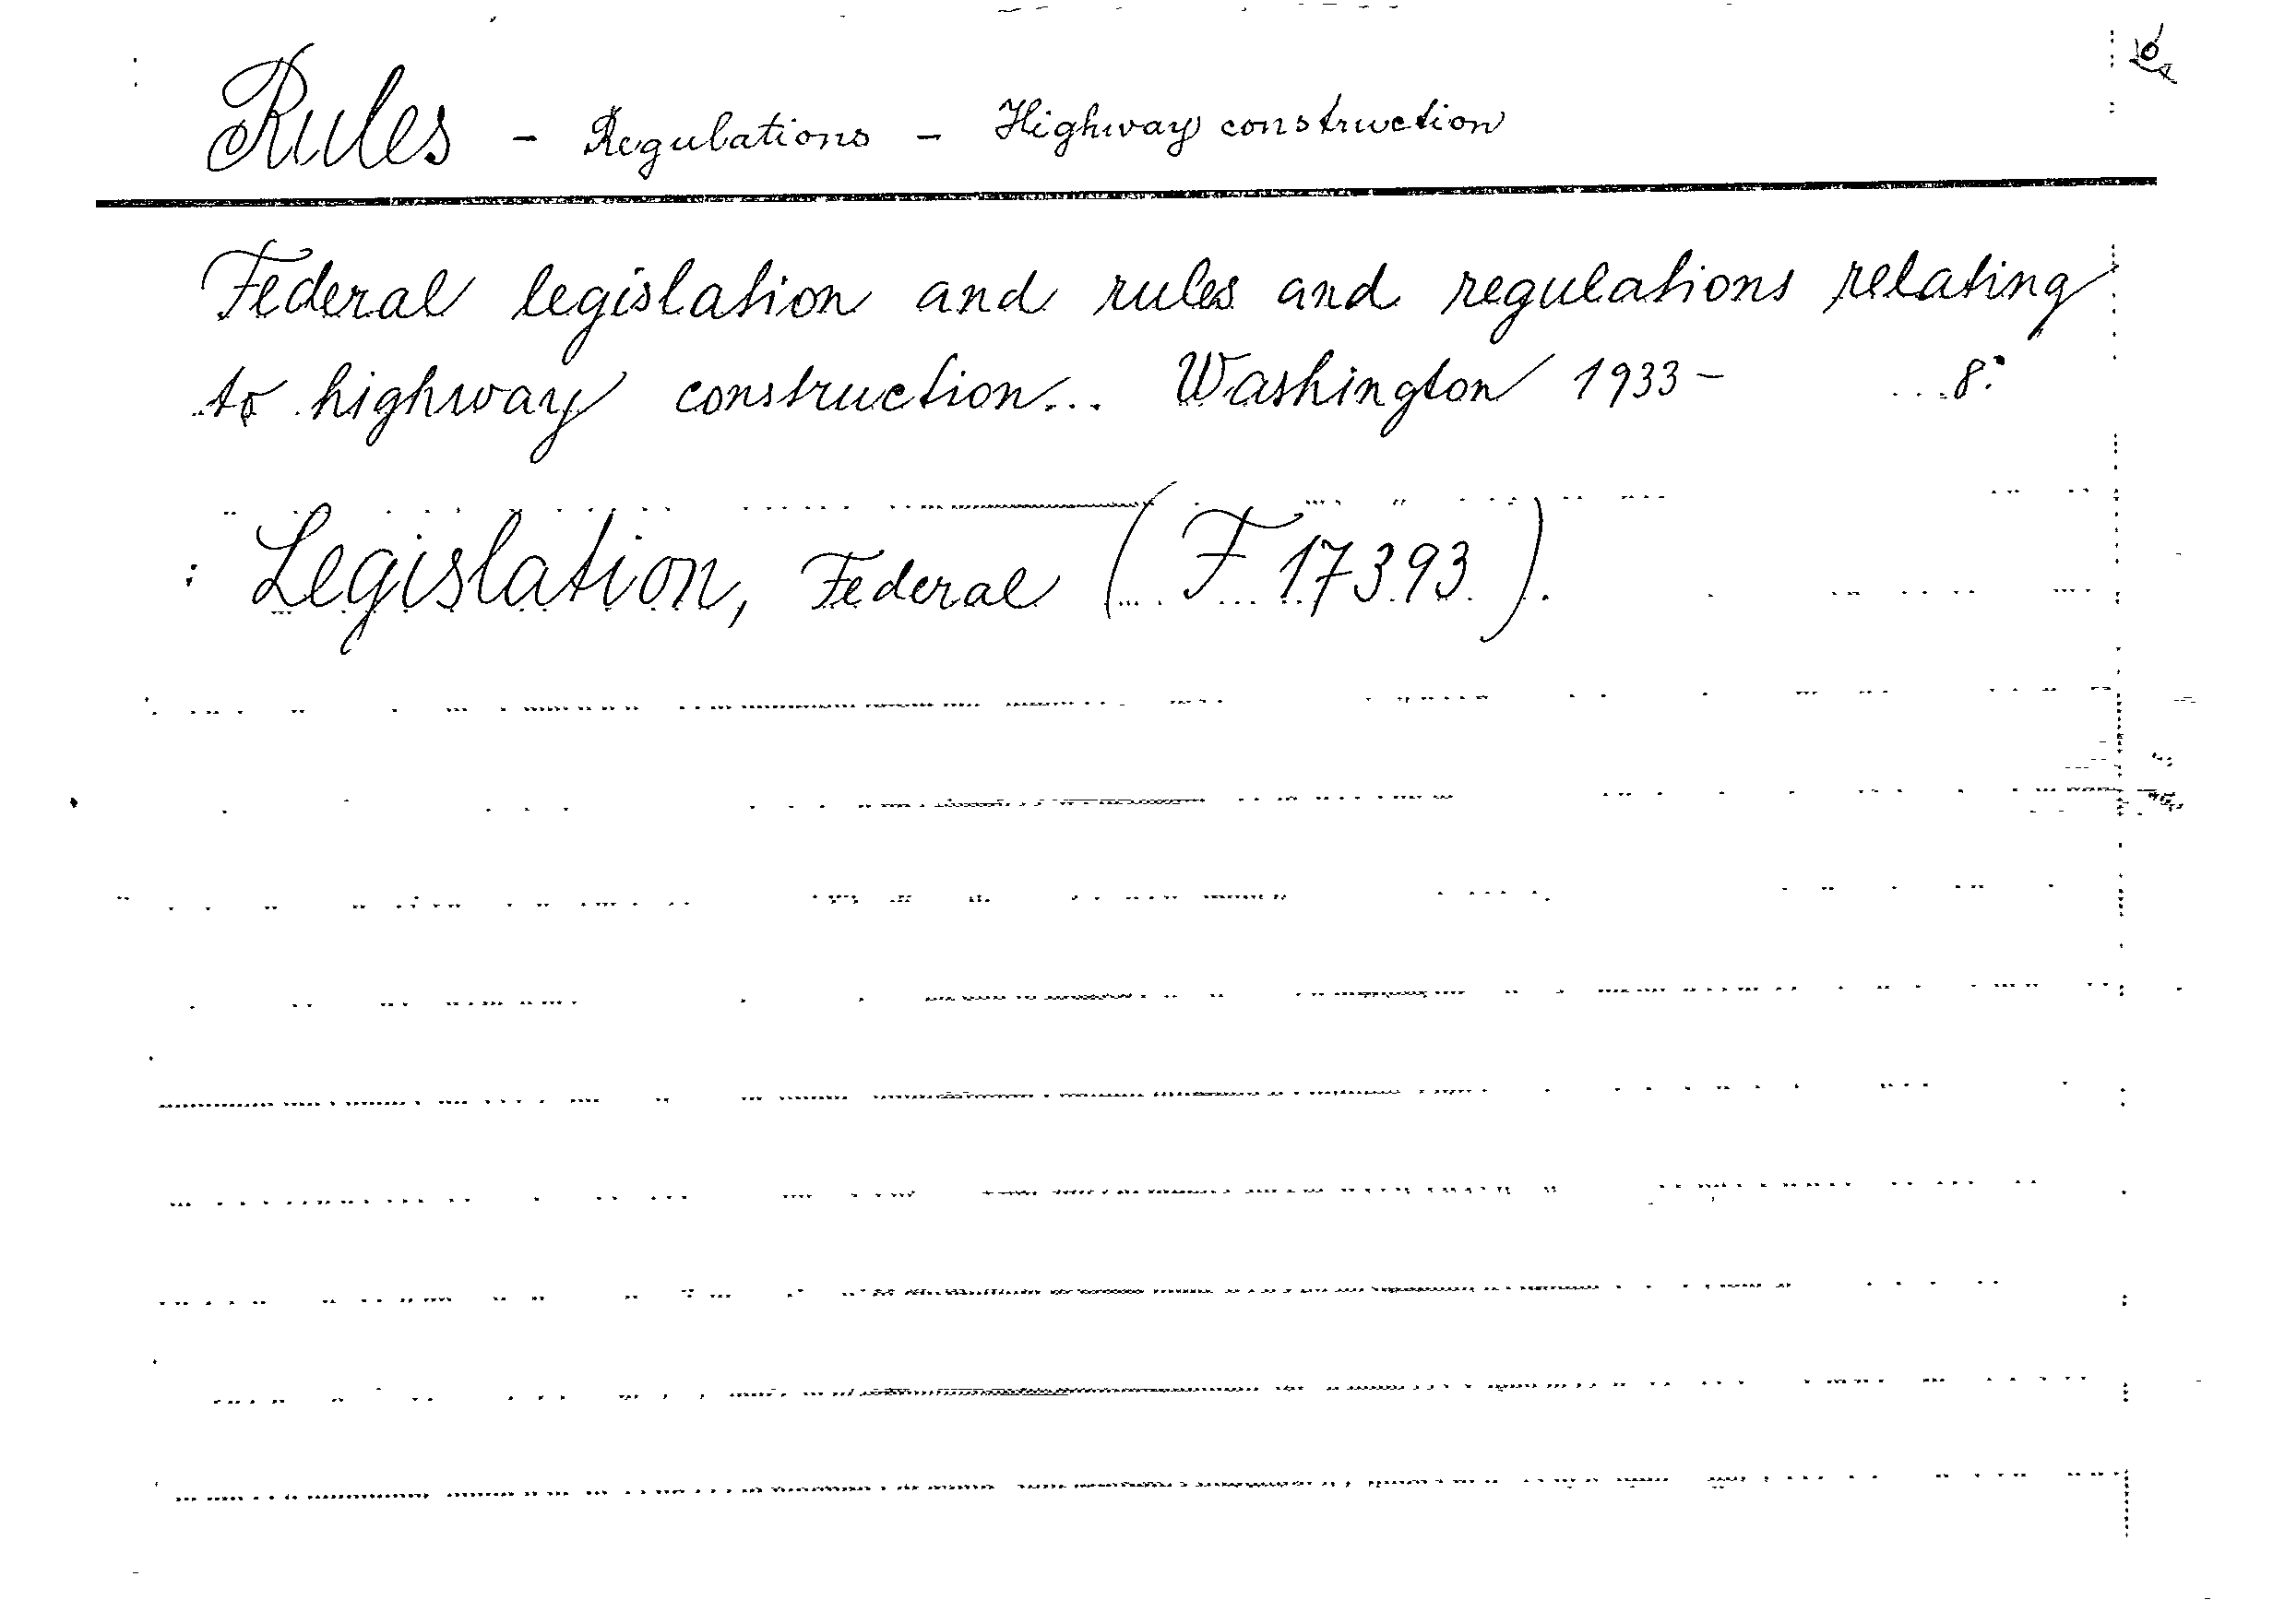 Rules - Regulations - Highway construction
Federal legislation and rules and regulations relating
to highway construction... Washington 1933- 8°
: Legislation, Federal (F 17393).